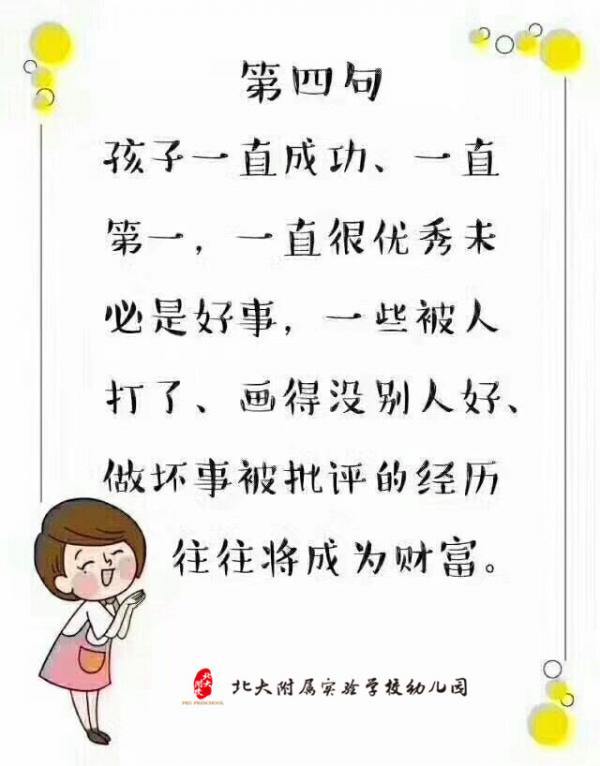 第四句
孩子一直成功、一直
第一，一直很优秀未
必是好事，一些被人
打了、画得没别人好、
做坏事被批评的经历
往往将成为财富。
北大附属实验学校幼儿园